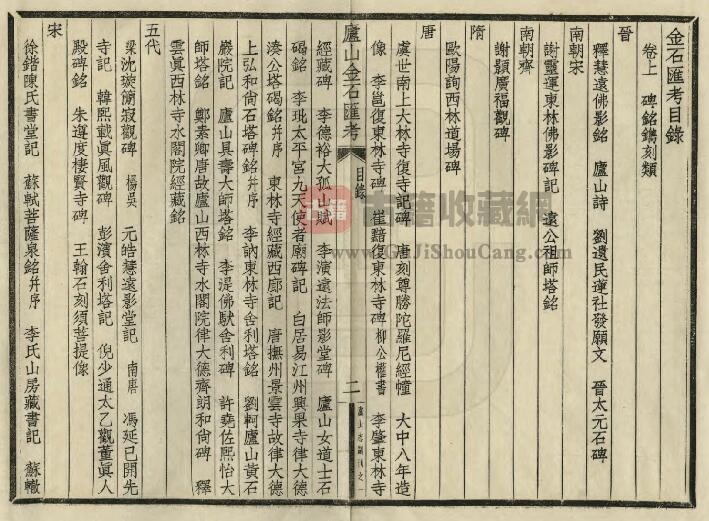 金石匯考目錄
卷上 碑銘鐫刻類
晉
釋慧遠佛影銘 廬山詩 劉遺民蓮社發願文 晉太元石碑
南朝宋
謝靈運東林佛影碑記 遠公祖師塔銘
南朝齊
謝顥廣福觀碑
隋
歐陽詢西林道場碑
唐
虞世南上大林寺復寺記碑 唐刻尊勝陀羅尼經幢 大中八年造
像 李邕復東林寺碑 崔黯復東林寺碑 柳公權書 李肇東林寺
經藏碑 李德裕大孤山賦 李演遠法師影堂碑 廬山女道士石
碣銘 李玭太平宮九天使者廟碑記 白居易江州興果寺律大德
湊公塔碣銘并序 東林寺經藏西廊記 唐撫州景雲寺故律大德
上弘和尚石塔碑銘并序 李訥東林寺舍利塔銘 劉軻廬山黃石
巖院記 廬山具壽大師塔銘 李湜佛馱舍利碑 許堯佐熙怡大
師塔銘 鄭素卿唐故廬山西林寺水閣院律大德齊朗和尚碑 釋
雲眞西林寺水閣院經藏銘
五代
梁沈璇簡寂觀碑 楊吳 元皓慧遠影堂記 南唐 馮延巳開先
寺記 韓熙載眞風觀碑 彭濱舍利塔記 倪少通太乙觀董眞人
殿碑銘 朱遵度棲賢寺碑 王翰石刻須菩提像
宋
徐鍇陳氏書堂記 蘇軾菩薩泉銘并序 李氏山房藏書記 蘇轍
廬山金石匯考
目錄
二
古籍收藏網
www.GuJiShouCang.com